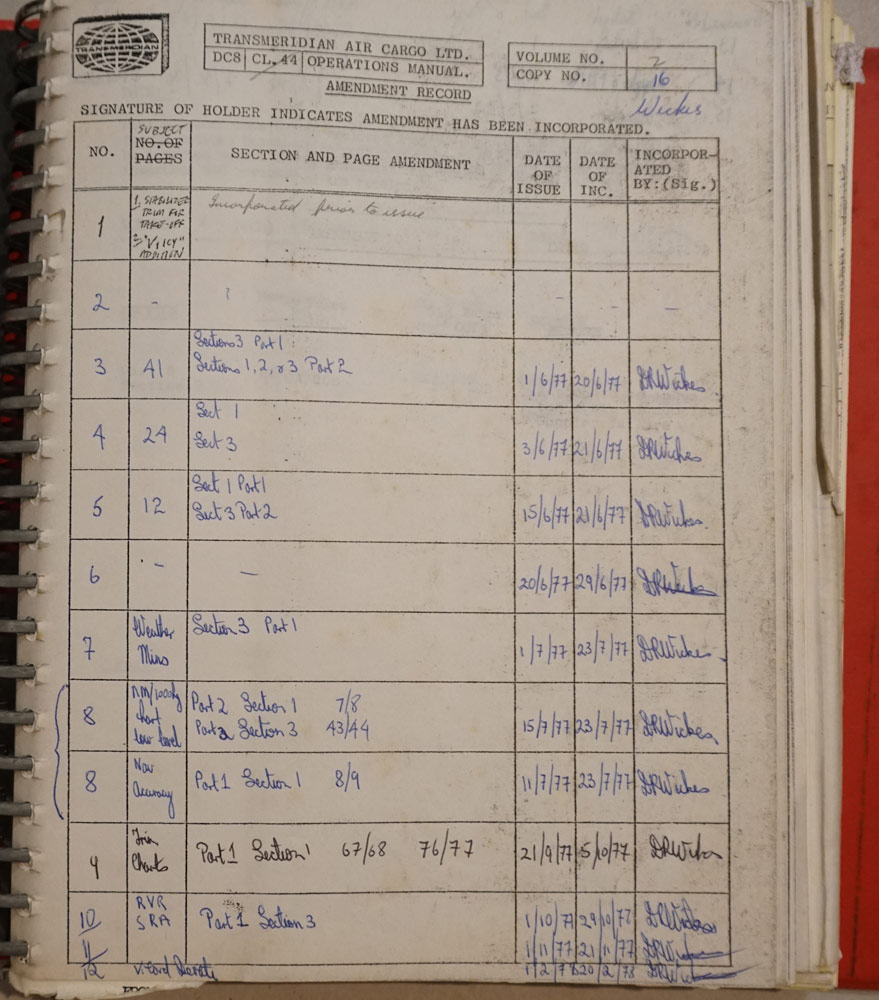 TRANSMERIDIAN
TRANSMERIDIAN AIR CARGO LTD.
DC8 CL.44 OPERATIONS MANUAL.
AMENDMENT RECORD
VOLUME NO. 2
COPY NO. 16
Wickes
SIGNATURE OF HOLDER INDICATES AMENDMENT HAS BEEN INCORPORATED.
NO. SUBJECT NO. OF PAGES SECTION AND PAGE AMENDMENT DATE OF ISSUE DATE OF INC. INCORPOR-ATED BY:(Sig.)
1 1. STABILIZER TRIM FOR TAKE-OFF "V1 ICY" ADDITION Incorporated prior to issue
2 - - - -
3 41 Sections 3 Part 1
Sections 1, 2, & 3 Part 2 1/6/77 20/6/77 DRWickes
4 24 Sect 1
Sect 3 3/6/77 21/6/77 DRWickes
5 12 Sect 1 Part 1
Sect 3 Part 2 15/6/77 21/6/77 DRWickes
6 - - 20/6/77 29/6/77 DRWickes
7 Weather Mins Section 3 Part 1 1/7/77 23/7/77 DRWickes
8 NM/1000kg chart low level Part 2 Section 1 7/8
Part 2 Section 3 43/44 15/7/77 23/7/77 DRWickes
8 Nav Accuracy Part 1 Section 1 8/9 11/7/77 23/7/77 DRWickes
9 Trim Charts Part 1 Section 1 67/68 76/77 21/9/77 5/10/77 DRWickes
10 RVR SRA Part 1 Section 3 1/10/77 29/10/77 DRWickes
11 1/11/77 21/11/77 DRWickes
12 1/2/78 20/2/78 DRWickes